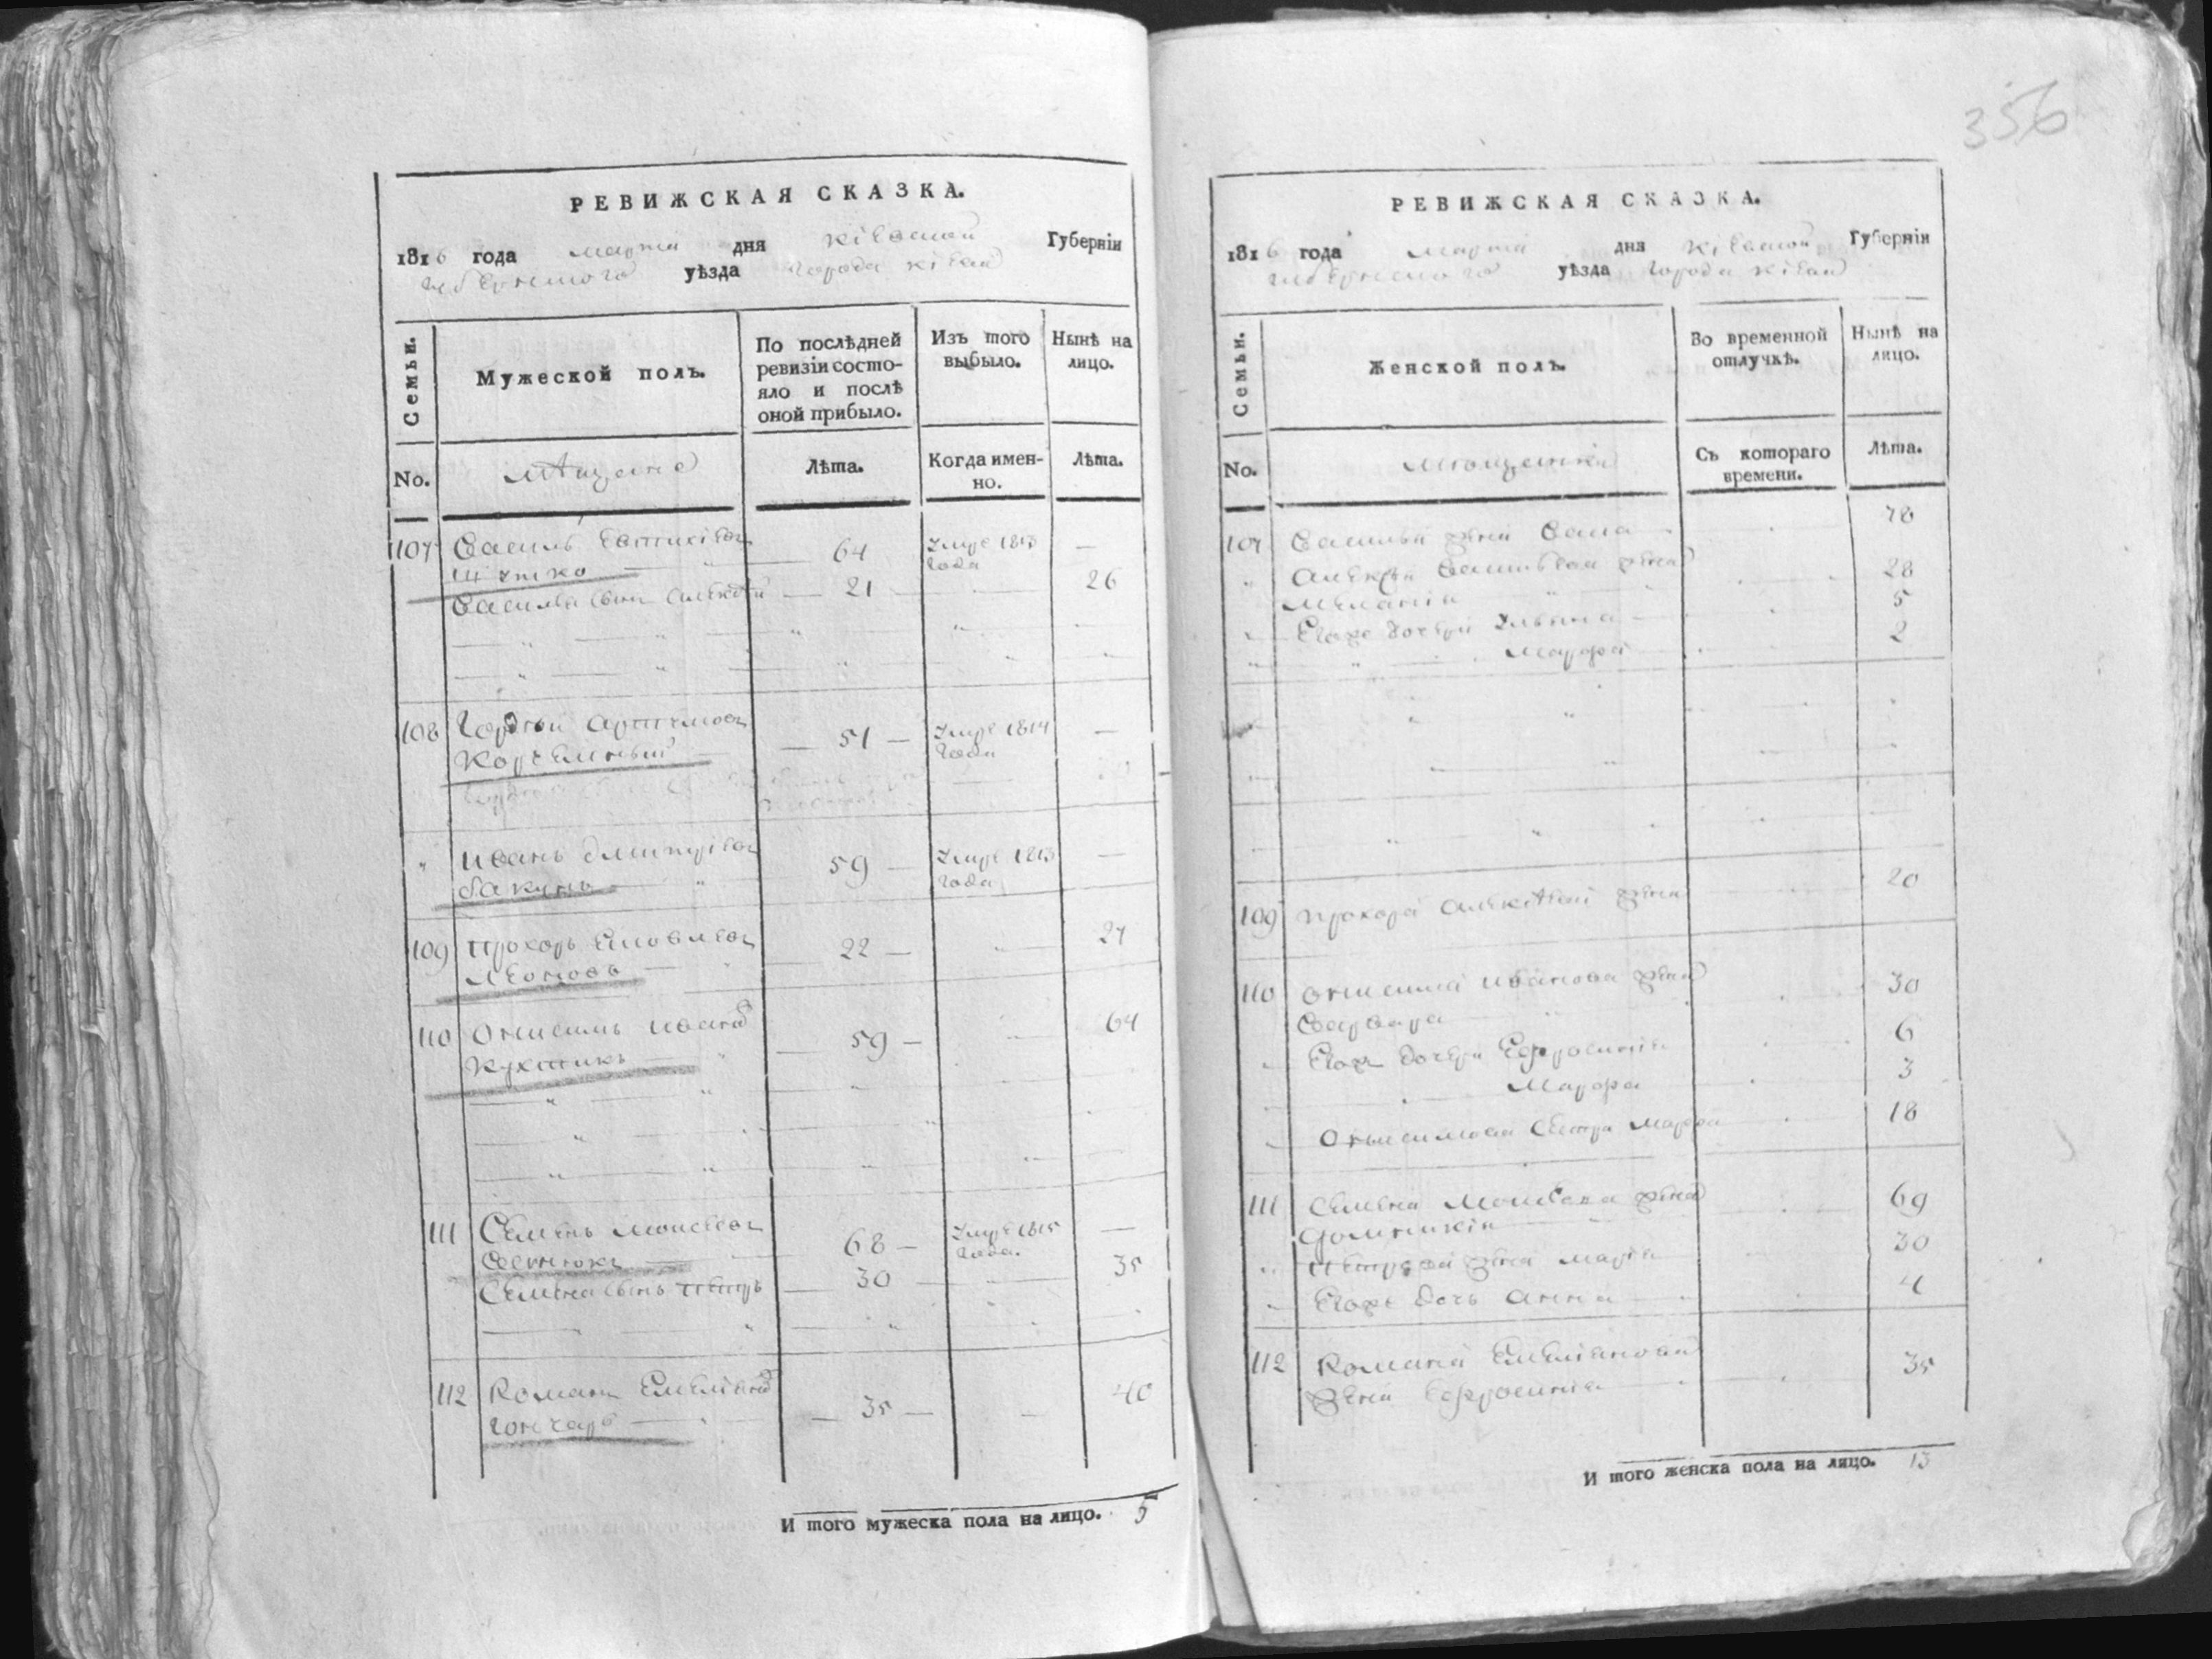 356
РЕВИЖСКАЯ СКАЗКА.
1816 года марта дня Кіевской Губерніи
губернского уѣзда города Кіева
Семьи.
Мужеской полъ.
По послѣдней ревизіи состо-
яло и послѣ
оной прибыло.
Изъ того
выбыло.
Нынѣ на
лицо.
No.
мѣщане
Лѣта.
Когда имен-
но.
Лѣта.
107 Василь Евтихіевъ 64 умре 1813 —
года
Василья сынъ Алексѣй 21 26
108 Гордѣй Артемовъ 51 умре 1814 —
Корчемный года
" Иванъ Дмитріевъ 59 умре 1813 —
Бакунъ года
109 Прохоръ Яковлевъ 22 27
Леоновъ
110 Онисимъ Ивановъ 59 64
Кухтикъ
111 Семенъ Моисеевъ 68 умре 1815 —
года.
Семена сынъ Петръ 30 35
112 Романъ Емеліановъ 35 40
Гончаръ
И того мужеска пола на лицо. 5
РЕВИЖСКАЯ СКАЗКА.
1816 года марта дня Кіевской Губерніи
губернского уѣзда города Кіева
Семьи.
Женской полъ.
Во временной
отлучкѣ.
Нынѣ на
лицо.
No.
мѣщанки
Съ котораго
времени.
Лѣта.
107 Василья жена
" Алексѣя Васильева жена 28
Меланія
Егоже дочери Ульяна 5
" Марфа 2
109 Прохора жена 20
110 Онисима Иванова жена 30
Варвара
Егоже дочери Ефросинія 6
Марфа 3
Онисимова сестра Марфа 18
111 Семена Моисеева жена 69
Домникія
" Петрова жена Марія 30
Егоже дочь Анна 4
112 Романа Емеліанова 35
жена Ефросинія
И того женска пола на лицо. 13